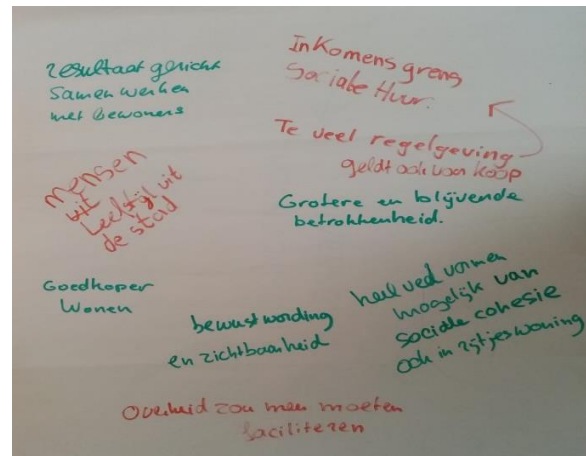 resultaat gericht
Samen werken
met bewoners
Inkomens grens
Sociale Huur.
Te veel regelgeving
geldt ook voor koop
mensen
uit
Leefstijl uit
de stad
Grotere en blijvende
betrokkenheid.
Goedkoper
Wonen
bewustwording
en zichtbaarheid
heel veel vormen
mogelijk van
sociale cohesie
ook in rijtjeswoning
Overheid zou meer moeten
faciliteren